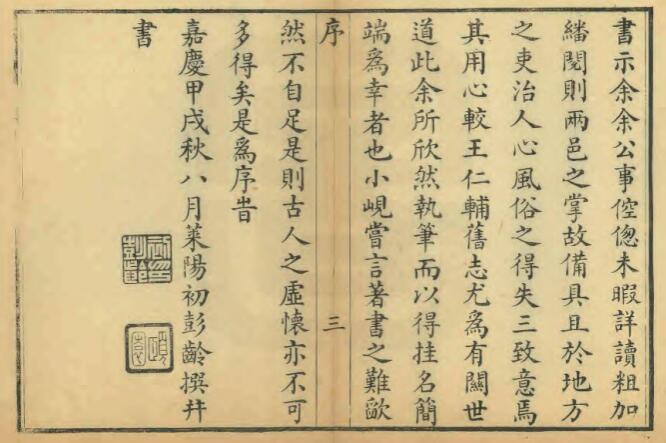 書示余余公事倥偬未暇詳讀粗加
繙閱則兩邑之掌故備具且於地方
之吏治人心風俗之得失三致意焉
其用心較王仁輔舊志尤為有關世
道此余所欣然執筆而以得挂名簡
端為幸者也小峴嘗言著書之難歐
序
三
然不自足是則古人之虛懷亦不可
多得矣是為序旹
嘉慶甲戌秋八月萊陽初彭齡撰幷
書